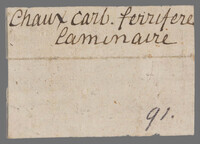 Chaux carb. ferrifere
laminaire
91.